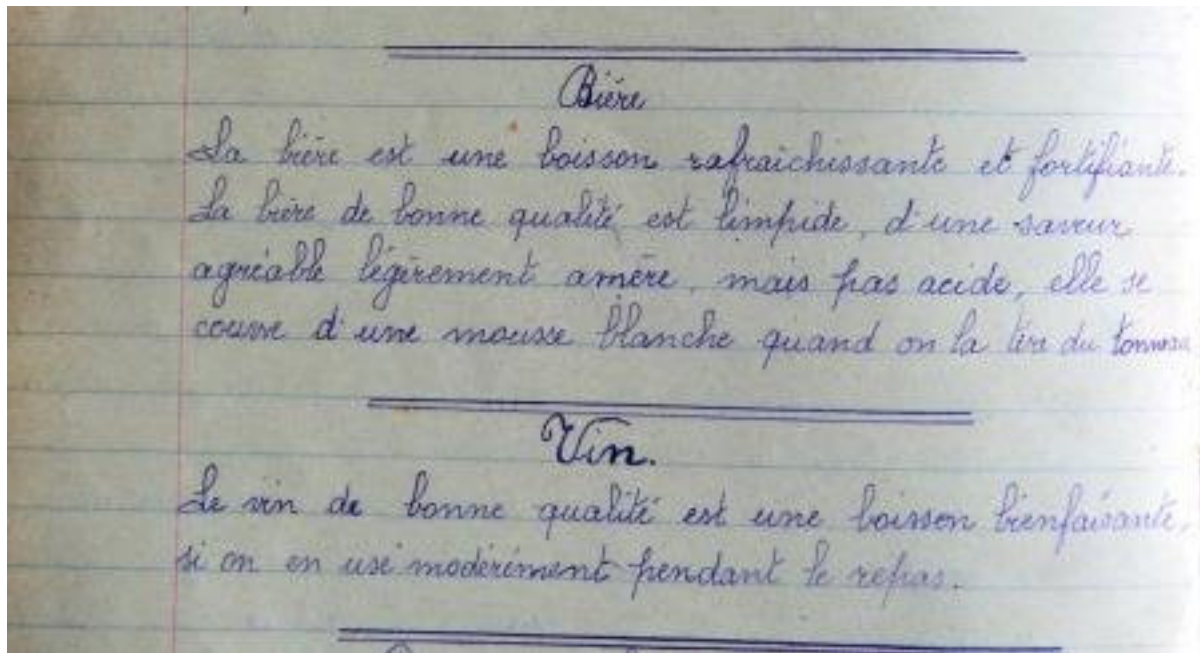 Bière
La bière est une boisson rafraichissante et fortifiante.
La bière de bonne qualité est limpide, d'une saveur
agréable légèrement amère, mais pas acide, elle se
couvre d'une mousse blanche quand on la tire du tonneau
Vin.
Le vin de bonne qualité est une boisson bienfaisante,
si on en use modérément pendant le repas.